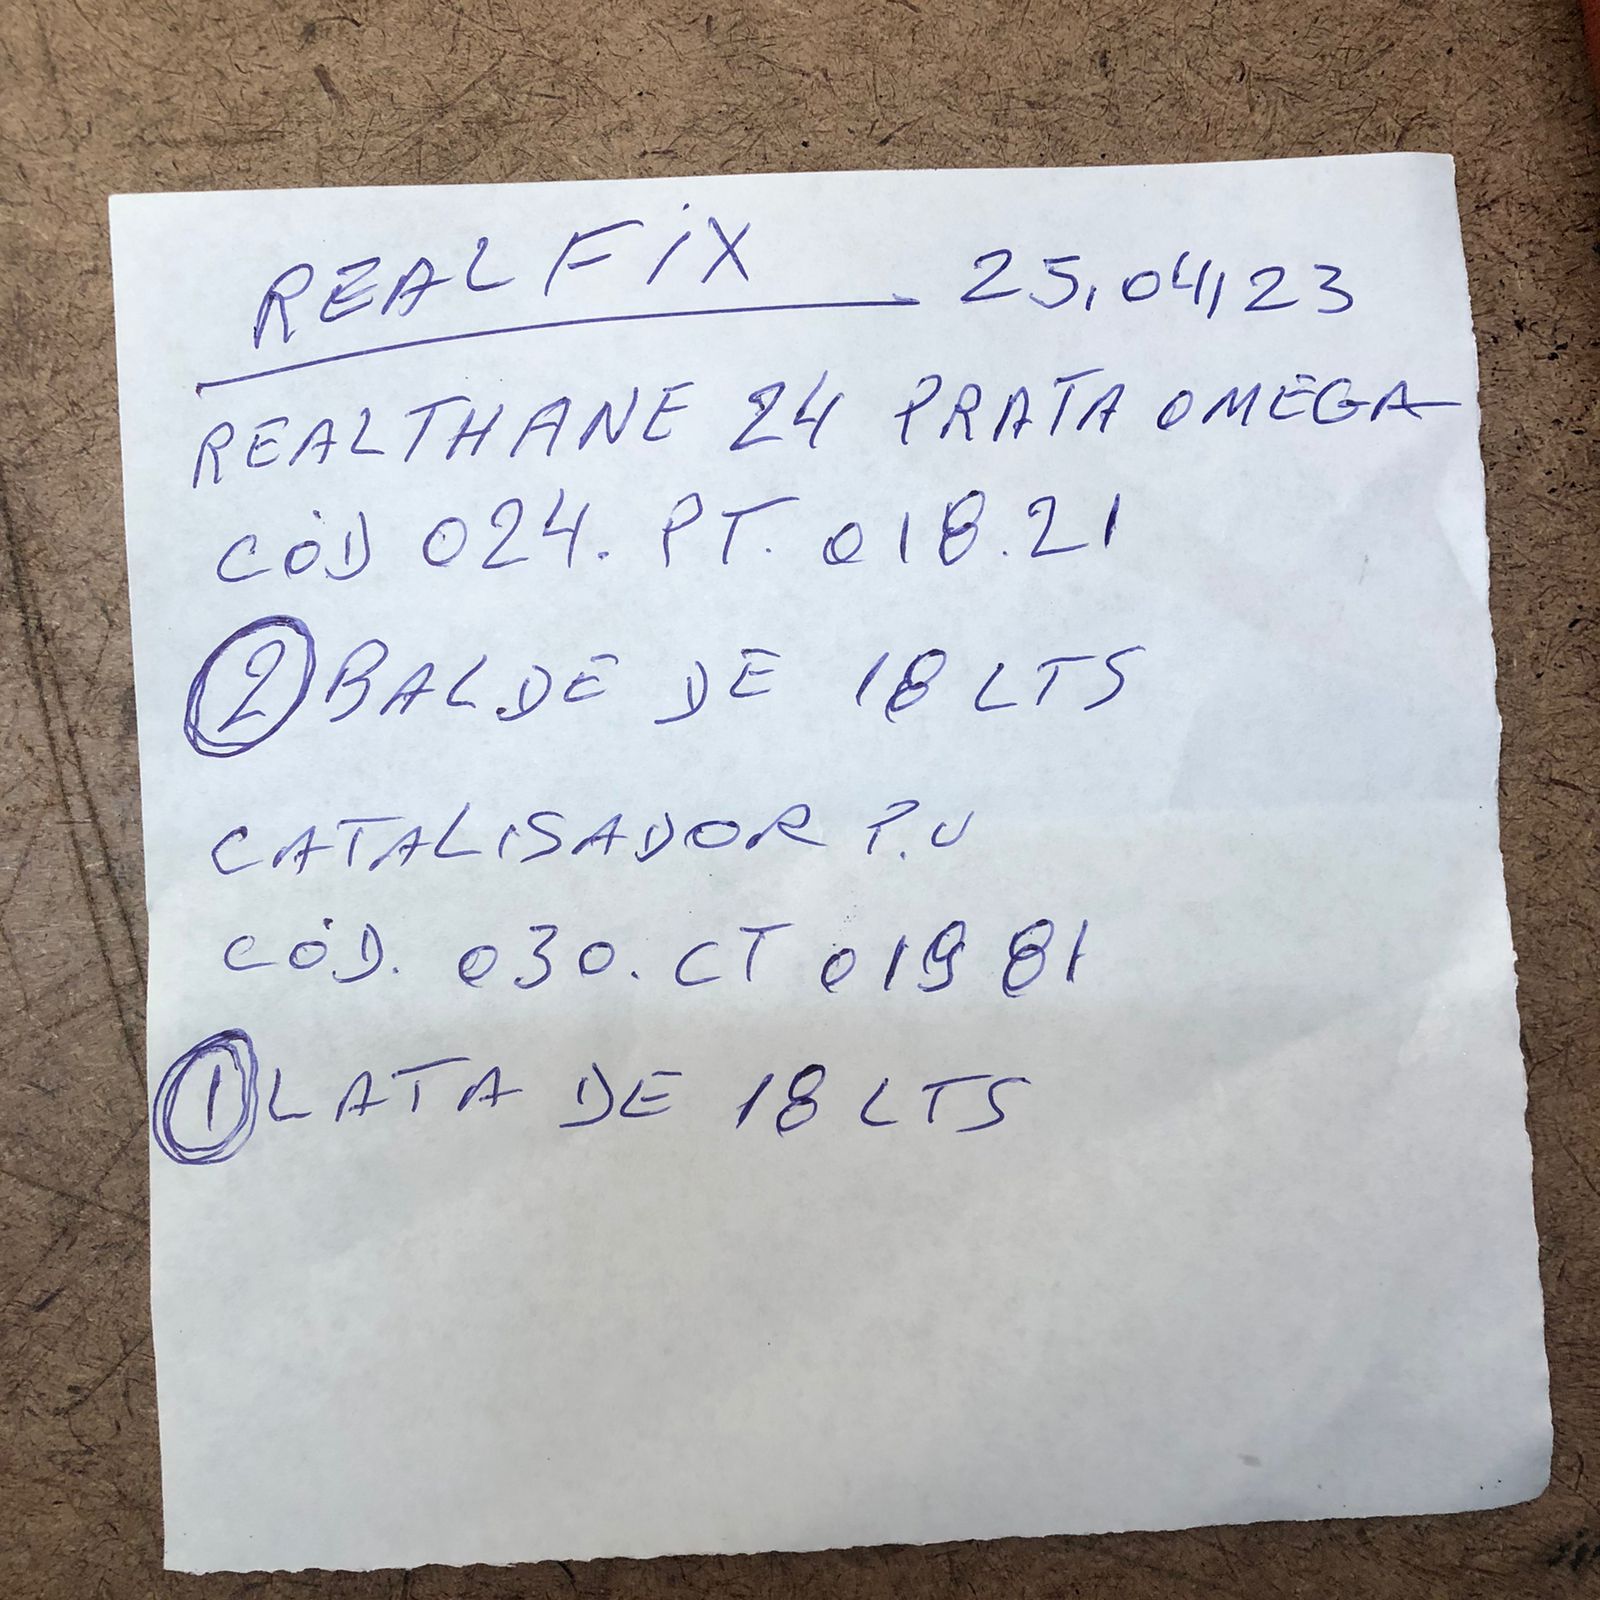 REALFiX 25,04,23
REALTHANE 24 PRATA OMEGA
CÓD 024. PT. 018.21
2 BALDE DE 18 LTS
CATALISADOR P.U
CÓD. 030. CT 019 81
1 LATA DE 18 LTS